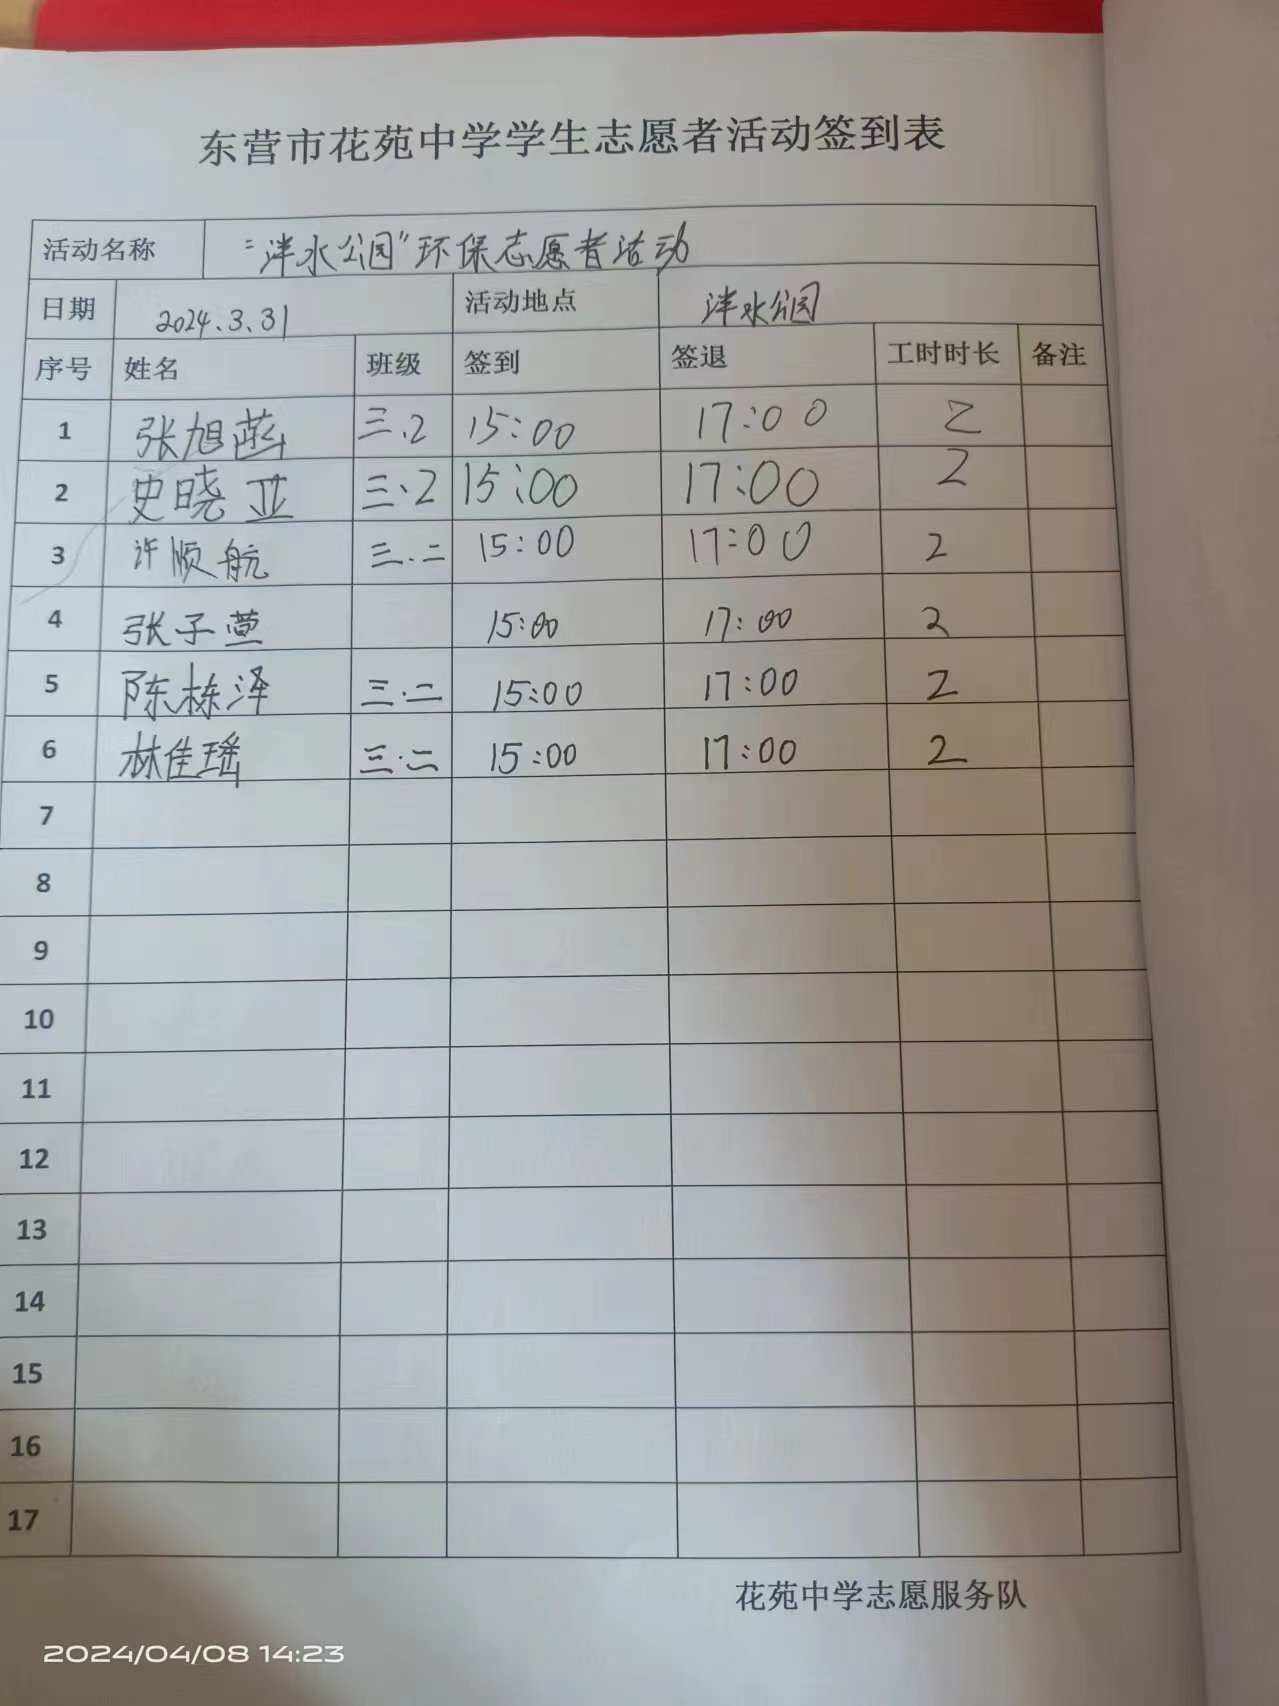 东营市花苑中学学生志愿者活动签到表
活动名称 “泮水公园”环保志愿者活动
日期 2024.3.31 活动地点 泮水公园
序号 姓名 班级 签到 签退 工时时长 备注
1 张旭菡 三.2 15:00 17:00 2
2 史晓亚 三.2 15:00 17:00 2
3 许顺航 三.二 15:00 17:00 2
4 张子萱 15:00 17:00 2
5 陈栋泽 三.二 15:00 17:00 2
6 林佳瑶 三.二 15:00 17:00 2
7
8
9
10
11
12
13
14
15
16
17
花苑中学志愿服务队
2024/04/08 14:23